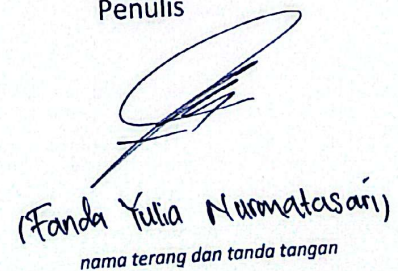 Penulis
(Fanda Yulia Nurmatasari)
nama terang dan tanda tangan